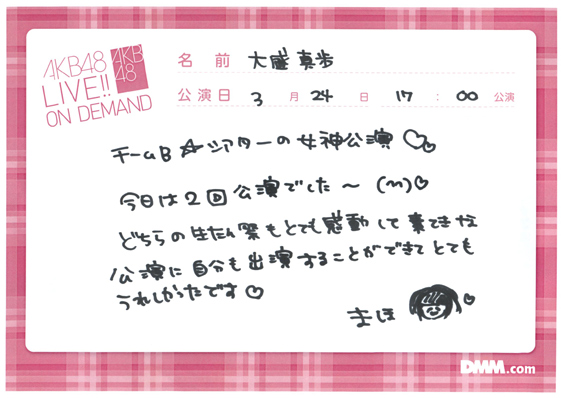 AKB48
LIVE!!
ON DEMAND
AKB
48
名前 大盛真歩
公演日 3月24日 17:00 公演
チームB☆シアターの女神公演♡♡
今日は2回公演でした〜(m)♡
どちらの生たん祭もとても感動して素てきな
公演に自分も出演することができてとても
うれしかったです♡
まほ ♡
DMM.com